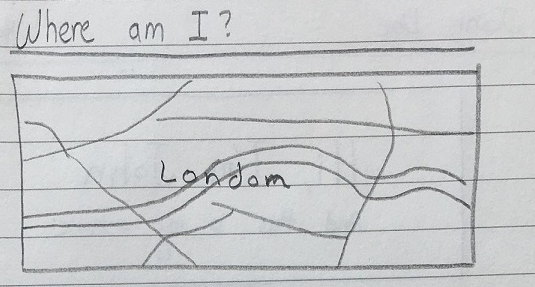 Where am I?
Londom